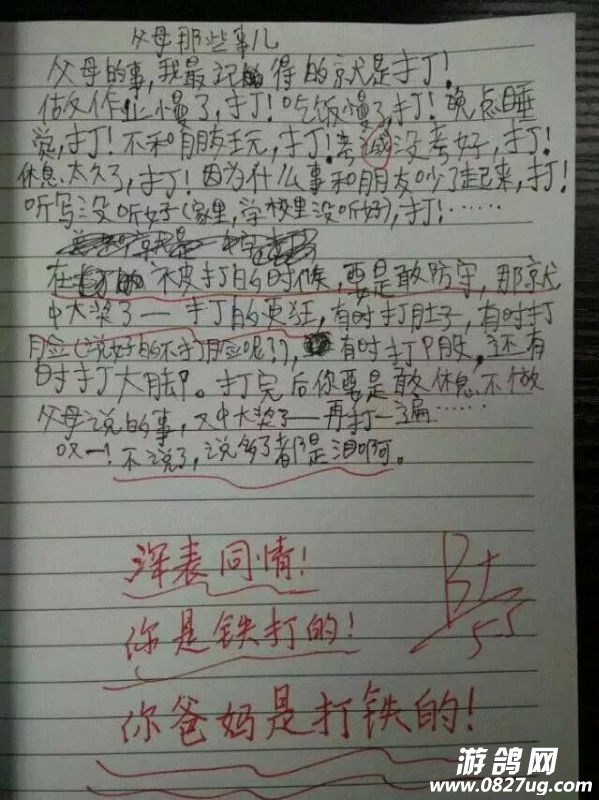 父母那些事儿
父母的事,我最记得的就是打!
做作业慢了,打!吃饭慢了,打!晚点睡
觉,打!不和朋友玩,打!考试没考好,打!
休息太久了,打!因为什么事和朋友吵了起来,打!
听写没听好(家里,学校里没听好),打!……
在 被打的时候,要是敢防守,那就
中大奖了——打的更狂,有时打肚子,有时打
脸(说好的不打脸呢??),有时打屁股,还有
时打大脚。打完后你要是敢休息不做
父母说的事,又中大奖了——再打一遍……
哎—!不说了,说多了都是泪啊。
深表同情!
你是铁打的!
你爸妈是打铁的!
B+
5-5
游鸽网
www.0827ug.com